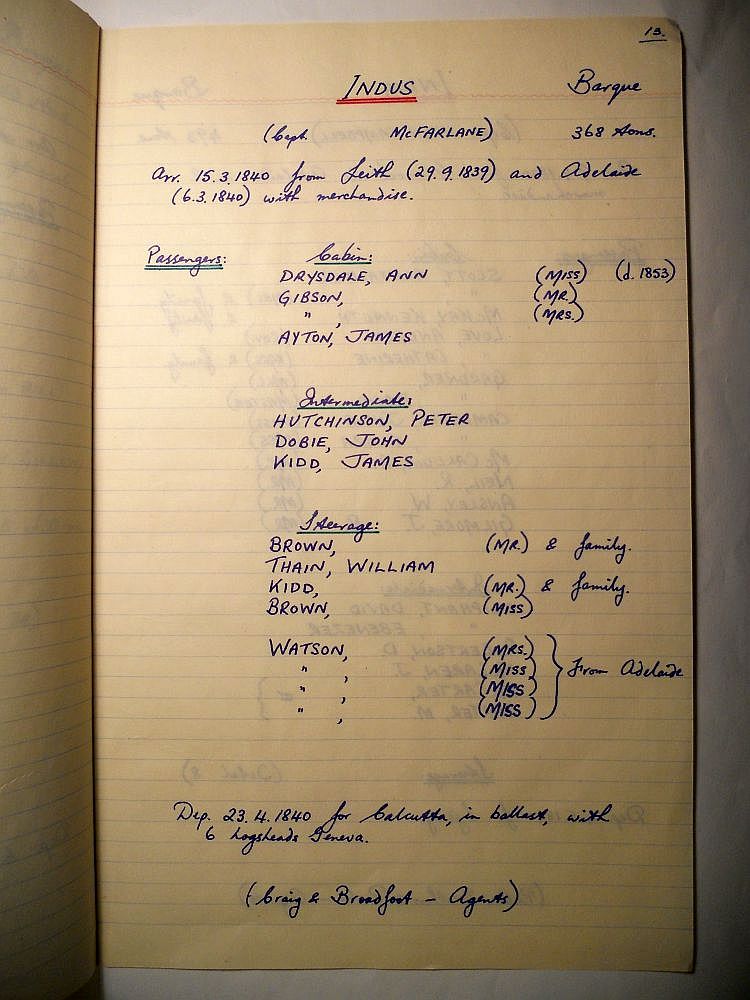 13.
INDUS Barque
(Capt. McFARLANE) 368 tons.
Arr. 15.3.1840 from Leith (29.9.1839) and Adelaide
(6.3.1840) with merchandise.
Passengers: Cabin:
DRYSDALE, ANN (MISS) (d. 1853)
GIBSON, (MR.)
" , (MRS.)
AYTON, JAMES
Intermediate:
HUTCHINSON, PETER
DOBIE, JOHN
KIDD, JAMES
Steerage:
BROWN, (MR.) & family.
THAIN, WILLIAM
KIDD, (MR.) & family.
BROWN, (MISS)
WATSON, (MRS.)
" , (MISS) } From Adelaide
" , (MISS)
" , (MISS)
Dep. 23.4.1840 for Calcutta, in ballast, with
6 hogsheads Geneva.
(Craig & Broadfoot - Agents)